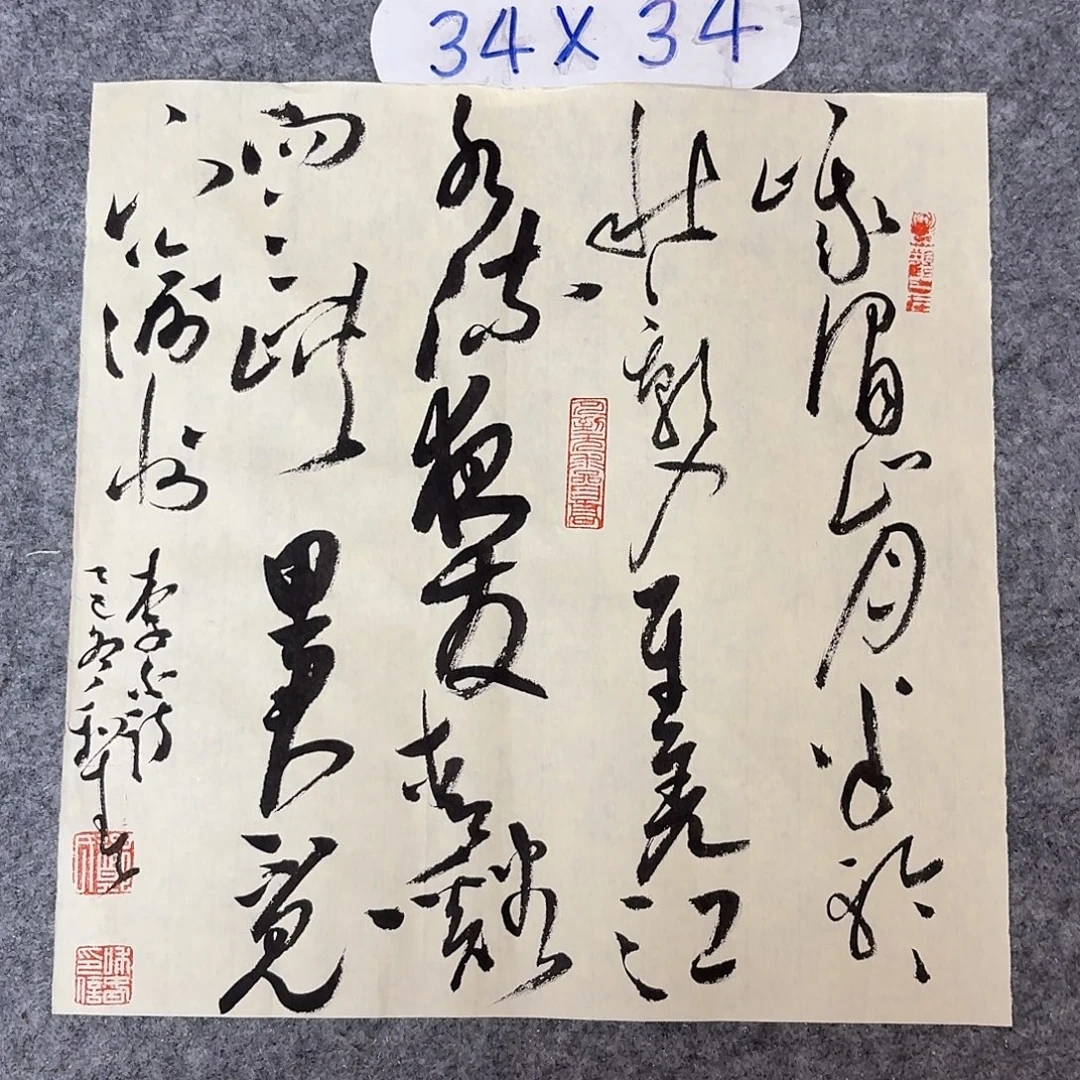 34×34
峨眉山月半轮
秋影入平羌江
水流夜发清谿
向三峡思君不见
下渝州
李白诗
乙巳冬